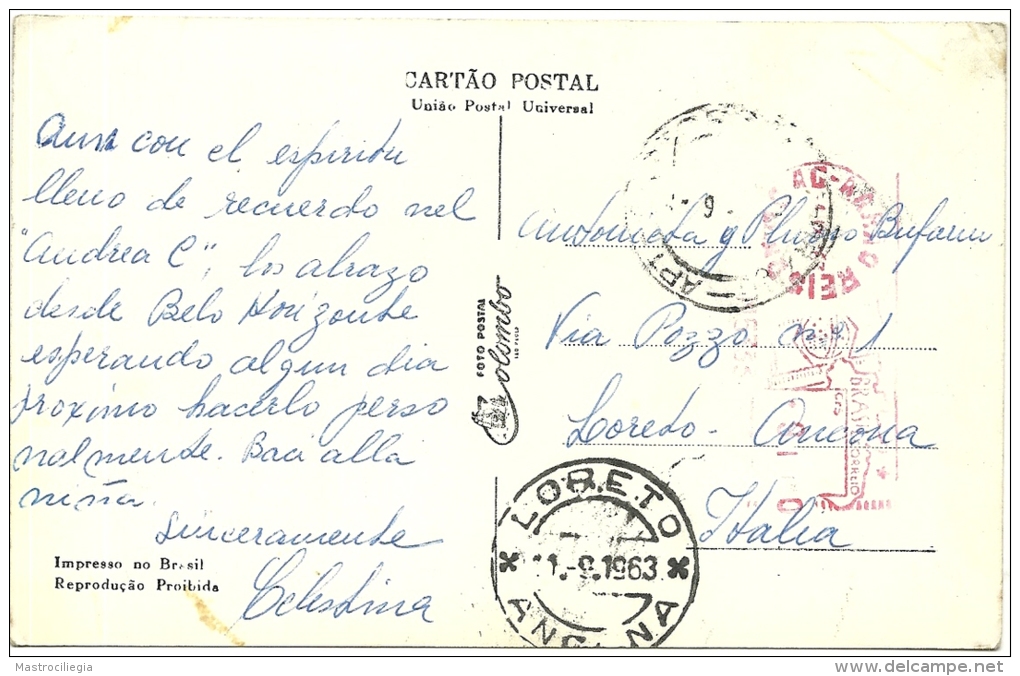 CARTÃO POSTAL
União Postal Universal
Aun con el espiritu
lleno de recuerdo nel
"Andrea C", los abrazo
desde Belo Horizonte
esperando algun dia
proximo hacerlo perso
nalmente. Baci alla
niña.
Sinceramente
Celestina
Impresso no Brasil
Reprodução Proibida
FOTO POSTAL
Colombo
SÃO PAULO
Antonieta y
Via Pozzo nº 1
Loreto - Ancona
Italia
LORETO
1.-9.1963
ANCONA
BRASIL CORREIO
Mastrociliegia
www.delcampe.net